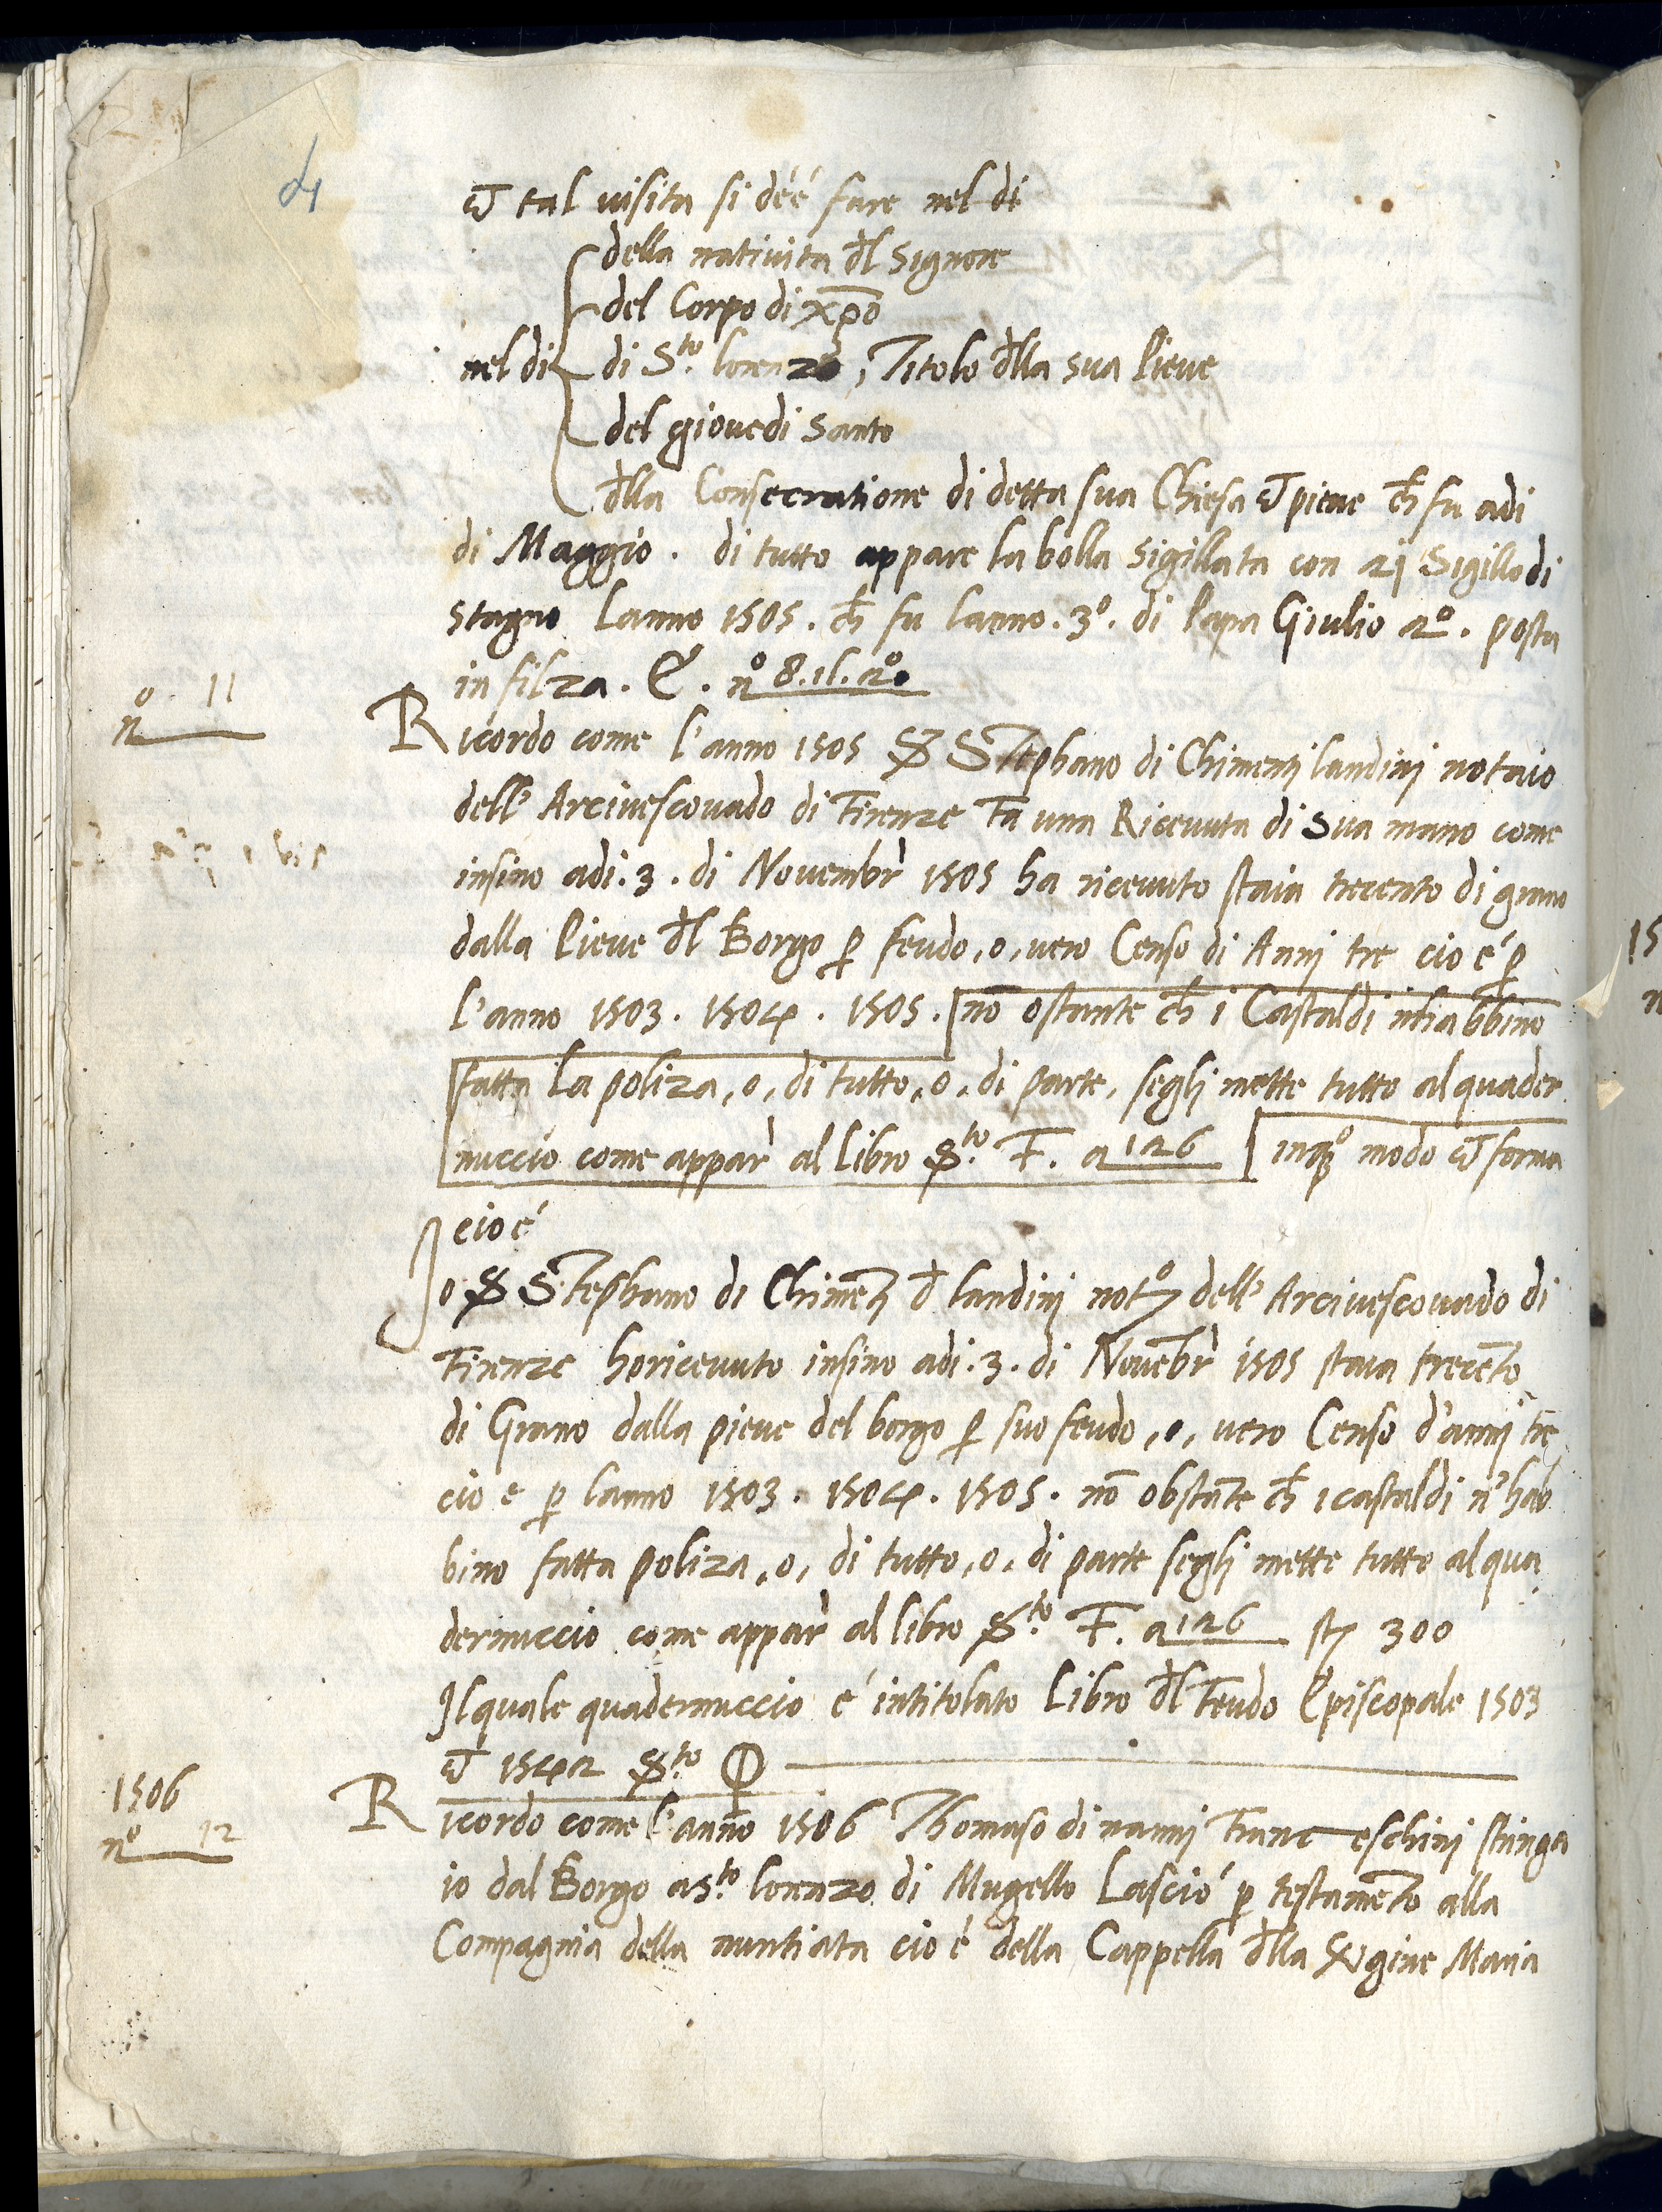 4
et tal uisita si déé fare nel dí
della natiuita dl̄ Signore
del Corpo di xp̄o
nel di di S.to lorenzo, Titolo dl̄la sua Pieue
del giouedi santo
dl̄la Consecratione di detta sua Chiesa et pieue ch̄ fu adi
di Maggio. di tutto appare la bolla sigillata con 21 Sigillo di
stagno Lanno 1505. ch̄ fu lanno. 3º. di Papa Giulio 2º. posta
in filza. C. nº 8. 2º.
nº 11
Ricordo come l'anno 1505 S Stephano di Chimentj landinj notaio
dell' Arciuescouado di Firenze Fa una Riceuuta di sua mano come
insino adi. 3. di Nouembr̀ 1505 ha riceuuto staia trecento di grano
dalla Pieue dl̄ Borgo p̱ feudo, o, uero Censo di Annj tre cio é p̱
l'anno 1503. 1504. 1505. nō ostante ch̄ i Castaldi nhabbino
fatta La poliza, o, di tutto, o, di parte, seglj mette tutto al quader
nuccio come appar̀ al Libro S.to F. a 126 inqº modo et forma
cio é
Jo S Stephano di Chimētj d̄ landinj notº dell' Arciuescouado di
Firenze ho riceuuto insino adi. 3. di Nouēbr̀ 1505 staia trecēto
di Grano dalla pieue del borgo p̱ suo feudo, o, uero Censo d'annj tre
cio e p̱ lanno 1503. 1504. 1505. nō obstāte ch̄ i castaldi n'hab
bino fatta poliza, o, di tutto, o, di parte seglj mette tutto al qua
dernuccio come appar̀ al libro S.to F. a 126 st 300
Jl quale quadernuccio é intitolato Libro dl̄ Feudo Episcopale 1503
et 1542 S.to
1506
nº 12
Ricordo come l'anno 1506 Thomaso di nannj Franceschinj stringa
io dal Borgo a S.to lorenzo di Mugello Lasció p̱ testamēto alla
Compagnia della nuntiata cio è della Cappella dl̄la Vgine Maria